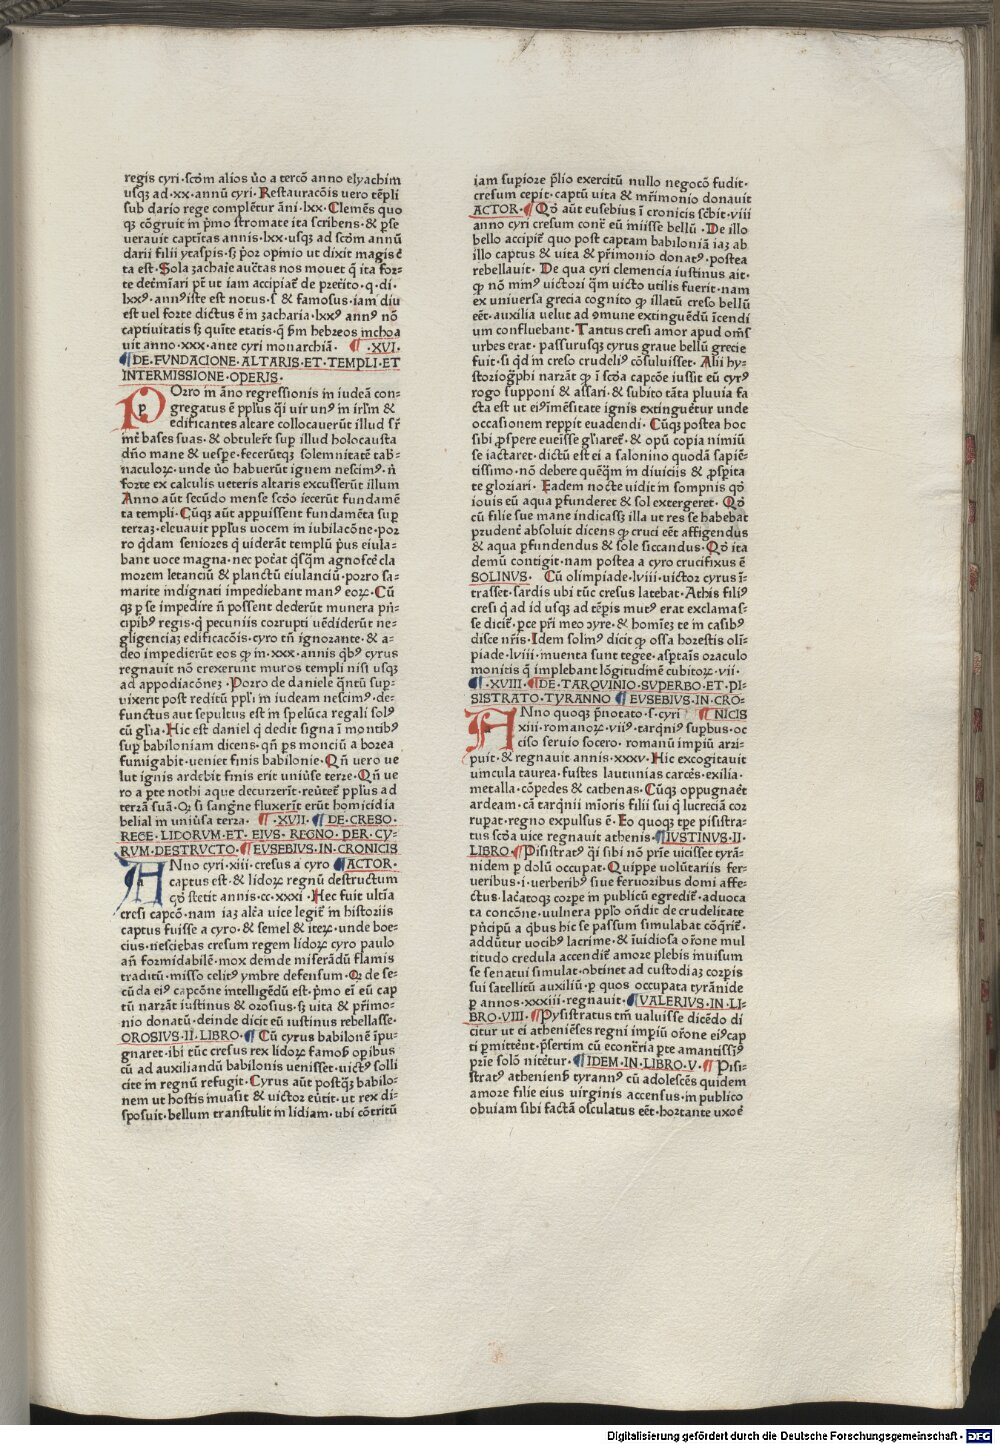 regis cyri·scōm alios ůo a tercō anno elyachim
usqȝ ad·xx·annū cyri·Restauracōis uero tēpli
sub dario rege complētur āni·lxx·Clemēs quo
qȝ cōgruit in p̄mo stromate ita scribens·& p̄se
uerauit captītas annis·lxx·usqȝ ad scōm annū
darii filii ytaspis·sȝ p̄or opinio ut dixit magis ē
ta est·Sola zachaie auc̄tas nos mouet q̄ ita for⸗
te det̄mīari pc̄t ut iam accipiat̄ de pret̄ito·q·di·
lxxꝰ·annꝰ iste est notus·s̄ & famosus·iam diu
est uel forte dictus ē in zacharia·lxxꝰ annꝰ nō
captiuitatis sȝ quīte etatis·q̄ s̄m hebreos inchoa
uit anno·xxx·ante cyri monarchiā· ¶·XVI·
¶DE·FVNDACIONE·ALTARIS·ET·TEMPLI·ET
INTERMISSIONE·OPERIS·
POrro in āno regressionis in iudeā con⸗
gregatus ē pplus q̄si uir unꝰ in irlm̄ &
edificantes altare collocauerūt illud sr̄
int̄ bases suas·& obtuler̄t sup illud holocausta
dn̄o mane & uesp̄e·fecerūtqȝ solemnitatē tab̄⸗
naculoꝝ·unde ůo habuerūt ignem nescimꝰ·n̄
forte ex calculis ueteris altaris excusserūt illum
Anno aūt secūdo mense scd̄o iecerūt fundamē
ta templi·Cūqȝ aūt appuissent fundamēta sup
terraȝ·eleuauit pplus uocem in iubilacōne·por
ro q̄dam seniores q̄ uiderāt templū p̄us eiula⸗
bant uoce magna·nec pot̄at q̄sq̄m agnosc̄e cla
morem letanciū & planctū eiulanciū·porro sa⸗
marite indignati impediebant manꝰ eoꝝ·Cū
qȝ p se impedire n̄ possent dederūt munera p̄n⸗
cipibꝰ regis·q̄ pecuniis corrupti uēdiderūt ne⸗
gligenciaȝ edificacōis·cyro tn̄ ignorante·& a⸗
deo impedierūt eos ꝙ in·xxx·annis q̄bꝰ cyrus
regnauit nō erexerunt muros templi nisi usqȝ
ad appodiacōneȝ·Porro de daniele q̄ntū sup⸗
uixerit post reditū ppli in iudeam nescimꝰ·de⸗
functus aut sepultus est in spelūca regali solꝰ
cū gl̄ia·Hic est daniel q̄ dedit signa ī montibꝰ
sup babiloniam dicens·qn̄ ps monciū a borea
fumigabit·ueniet finis babilonie·Qn̄ uero ue
lut ignis ardebit finis erit uniůse terre·Qn̄ ue
ro a pte nothi aque decurrerīt·reůtet̄ pplus ad
terrā suā·Qꝛ si sangn̄e fluxerīt erūt homicidia
belial in uniůsa terra· ¶·XVII·¶DE·CRESO·
REGE·LIDORVM·ET·EIVS·REGNO·PER·CY⸗
RVM·DESTRVCTO·¶EVSEBIVS·IN·CRONICIS
ANno cyri·xiii·cresus a cyro ¶ACTOR·
captus est·& lidoꝝ regnū destructum
qd̄ stetit annis·cc·xxxi·Hec fuit ultīa
cresi capcō·nam iaȝ alc̄a uice legit̄ in historiis
captus fuisse a cyro·& semel & iteꝝ·unde boe⸗
cius·nesciebas cresum regem lidoꝝ cyro paulo
an̄ formidabilē·mox deinde miserādū flamis
traditū·misso celitꝰ ymbre defensum·Qꝛ de se⸗
cūda eiꝰ capcōne intelligēdū est·p̄mo eī eū cap
tū narrāt iustinus & orosius·sȝ uita & pr̄imo⸗
nio donatū·deinde dicit eū iustinus rebellasse·
OROSIVS·II·LIBRO·¶ Cū cyrus babilonē īpu⸗
gnaret·ibi tūc cresus rex lidoꝝ famoꝰ opibus
cū ad auxiliandū babilonis uenisset·uictꝰ solli
cite in regnū refugit·Cyrus aūt postq̄ȝ babilo⸗
nem ut hostis inuasit & uictor eůtit·ut rex di⸗
sposuit·bellum transtulit in lidiam·ubi cōtritū
iam supiore p̄lio exercitū nullo negocō fudit·
cresum cepit·captū uita & mr̄imonio donauit
ACTOR·¶ Qd̄ aūt eusebius ī cronicis scb̄it·viii
anno cyri cresum contr̄ eū iniisse bellū·De illo
bello accipit̄ quo post captam babiloniā iaȝ ab
illo captus & uita & pr̄imonio donatꝰ·postea
rebellauit·De qua cyri clemencia iustinus ait·
ꝙ nō minꝰ uictori q̄m uicto utilis fuerit·nam
ex uniuersa grecia cognito ꝙ illatū creso bellū
eēt·auxilia uelut ad ꝯmune extinguēdū īcendi
um confluebant·Tantus cresi amor apud om̄s
urbes erat·passurusqȝ cyrus graue bellū grecie
fuit·si qd̄ in creso crudeliꝰ cōsuluisset·Alii hy⸗
storiog̃phi narrāt ꝙ ī scd̄a capcōe iussit eū cyrꝰ
rogo supponi & assari·& subito tāta pluuia fa
cta est ut eiꝰ īmēsitate ignis extinguet̄ur unde
occasionem reppit euadendi·Cūqȝ postea hoc
sibi ꝓspere eueīsse gl̄iaret̄·& opū copia nimiū
se iactaret·dictū est ei a salonino quodā sapiē⸗
tissimo·nō debere quēq̄m in diuiciis & ꝓspita
te gloriari·Eadem nocte uidit in sompnis qd̄
iouis eū aqua pfunderet & sol extergeret·Qd̄
cū filie sue mane indicassȝ illa ut res se habebat
prudent̄ absoluit dicens ꝙ cruci eēt affigendus
& aqua pfundendus & sole siccandus·Qd̄ ita
demū contigit·nam postea a cyro crucifixus ē
SOLINVS· Cū olimpiade·lviii·uictor cyrus īt⸗
trasset·sardis ubi tūc cresus latebat·Athis filiꝰ
cresi q̄ ad id usqȝ ad tēpis mutꝰ erat exclamas⸗
se dicit̄·pce p̄ri meo ꝯyre·& homīeȝ te in casibꝰ
disce nr̄is·Idem solinꝰ dicit ꝙ ossa horestis olī⸗
piade·lviii·inuenta sunt tegee·asptaīs oraculo
monitis q̄ implebant lōgitudinē cubitoꝝ·vii·
¶·XVIII·¶DE·TARQVINIO·SVPERBO·ET·PI⸗
SISTRATO·TYRANNO ¶ EVSEBIVS·IN·CRO⸗
ANno quoqȝ p̄notato·s̄·cyri ¶ NICIS
xiii·romanoꝝ·viiꝰ·tarqn̄iꝰ supbus·oc
ciso seruio socero·romanū impiū arri⸗
puit·& regnauit annis·xxxv·Hic excogitauit
uincula taurea·fustes lautunias carcēs·exilia·
metalla·cōpedes & cathenas·Cūqȝ oppugnaēt
ardeam·cā tarqn̄ii mīoris filii sui q̄ lucreciā cor
rupat·regno expulsus ē·Eo quoqȝ tpe pisistra⸗
tus scd̄a uice regnauit athenis·¶IVSTINVS·II·
LIBRO·¶Pisistratꝰ q̄si sibi nō pr̄ie uicisset tyrā⸗
nidem p dolū occupat·Quippe uolūtariis fer⸗
ueribus·i·uerberibꝰ siue feruoribus domi affe⸗
ctus·lac̄atoqȝ corpe in publicū egredit̄·aduoca
ta concōne·uulnera pplo on̄dit·de crudelitate
p̄ncipū a q̄bus hic se passum simulabat cōq̄rit̄·
addūtur uocibꝰ lacrime·& īuidiosa or̄one mul
titudo credula accendit̄ amore plebis inuisum
se senatui simulat·obtinet ad custodiaȝ corpis
sui satellitū auxiliū·p quos occupata tyrānide
p annos·xxxiii·regnauit·¶VALERIVS·IN·LI⸗
BRO·VIII·¶Pysistratus tm̄ ualuisse dicēdo di
citur ut ei athenīēses regni impiū or̄one eiꝰ cap
ti pmittent̄·psertim cū econtr̄ia pte amantissīꝰ
pr̄ie solō nitētur·¶IDEM·IN·LIBRO·V·¶ Pisi⸗
stratꝰ atheniens̄ tyrannꝰ cū adolescēs quidem
amore filie eius uirginis accensus·in publico
obuiam sibi factā osculatus eēt·hortante uxoē
Digitalisierung gefördert durch die Deutsche Forschungsgemeinschaft · DFG